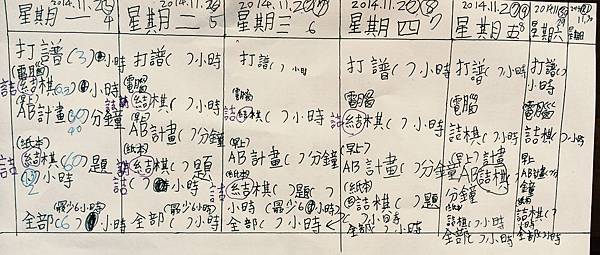 2014.11.2
星期一 4
打譜(3)小時
(電腦)
詰棋(0.5)小時
(早上)
AB計畫()分鐘
90
(紙本)
詰棋(60)題
小時
(最少6小時)
全部(6)小時
2014.11.2
星期二 5
打譜( )小時
電腦
詰棋( )小時
早上
AB計畫( )分鐘
(紙本)
詰棋( )題
( )小時
(最少6小時)
全部( )小時
2014.11.2
星期三 6
打譜( )小時
電腦
詰棋( )小時
(早上)
AB計畫( )分鐘
(紙本)
詰棋( )題( )
小時(最少6小時)
全部( )小時
2014.11.2
星期四 7
打譜( )小時
(電腦)
詰棋( )小時
(早上)
AB計畫( )分鐘
(紙本)
詰棋( )題
( )小時
全部( )小時
2014.11.2
星期五 8
打譜( )小時
(電腦)
詰棋( )小時
(早上)計畫
AB詰棋( )
分鐘
詰棋( )小時
全部( )小時
2014.11
星期六
打譜( )
小時
(電腦)
詰棋( )小時
早上
AB計畫( )分
鐘
紙本
詰棋( )
小時
全部( )小時
11.30
星期